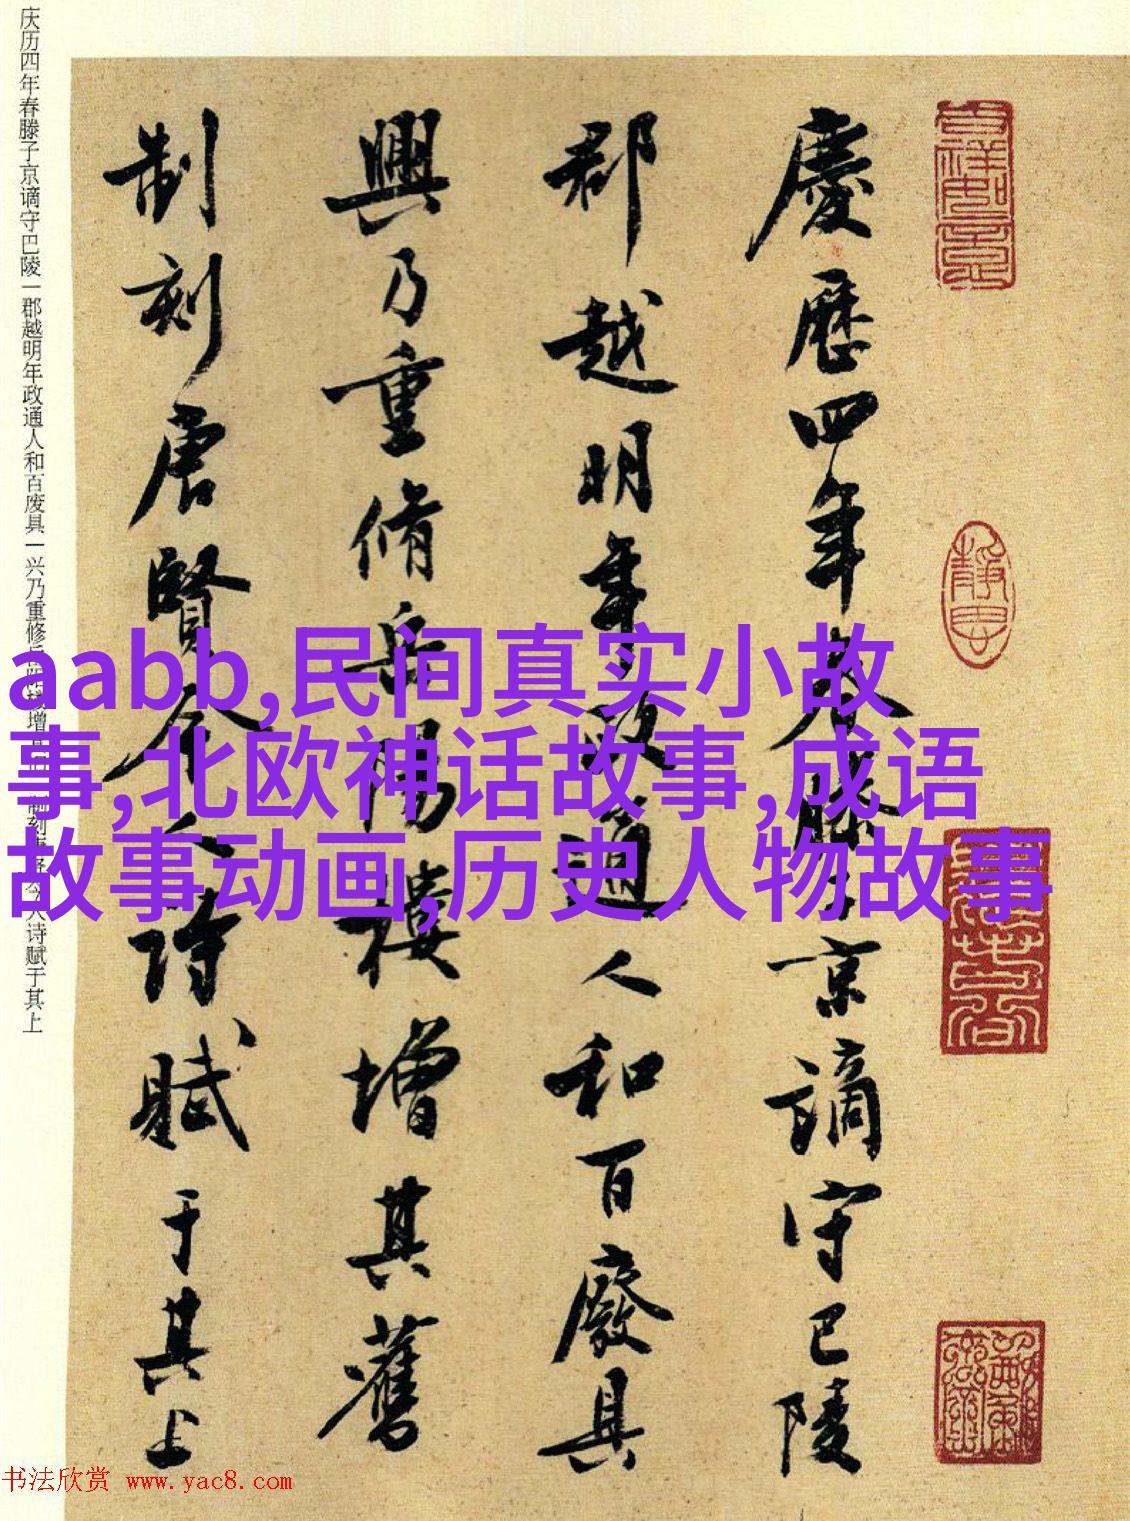 慶歷四年春滕子京謫守巴陵
郡越明年政通人和百廢具
興乃重脩岳陽樓增其舊
制刻唐賢今人詩賦于其上
庆历四年春滕子京谪守巴陵一郡越明年政通人和百废具一兴乃重修岳阳楼增其旧一制刻唐贤今人诗赋于其上
aabb,民间真实小故
事,北欧神话故事,成语
故事动画,历史人物故事
书法欣赏 www.yac8.com